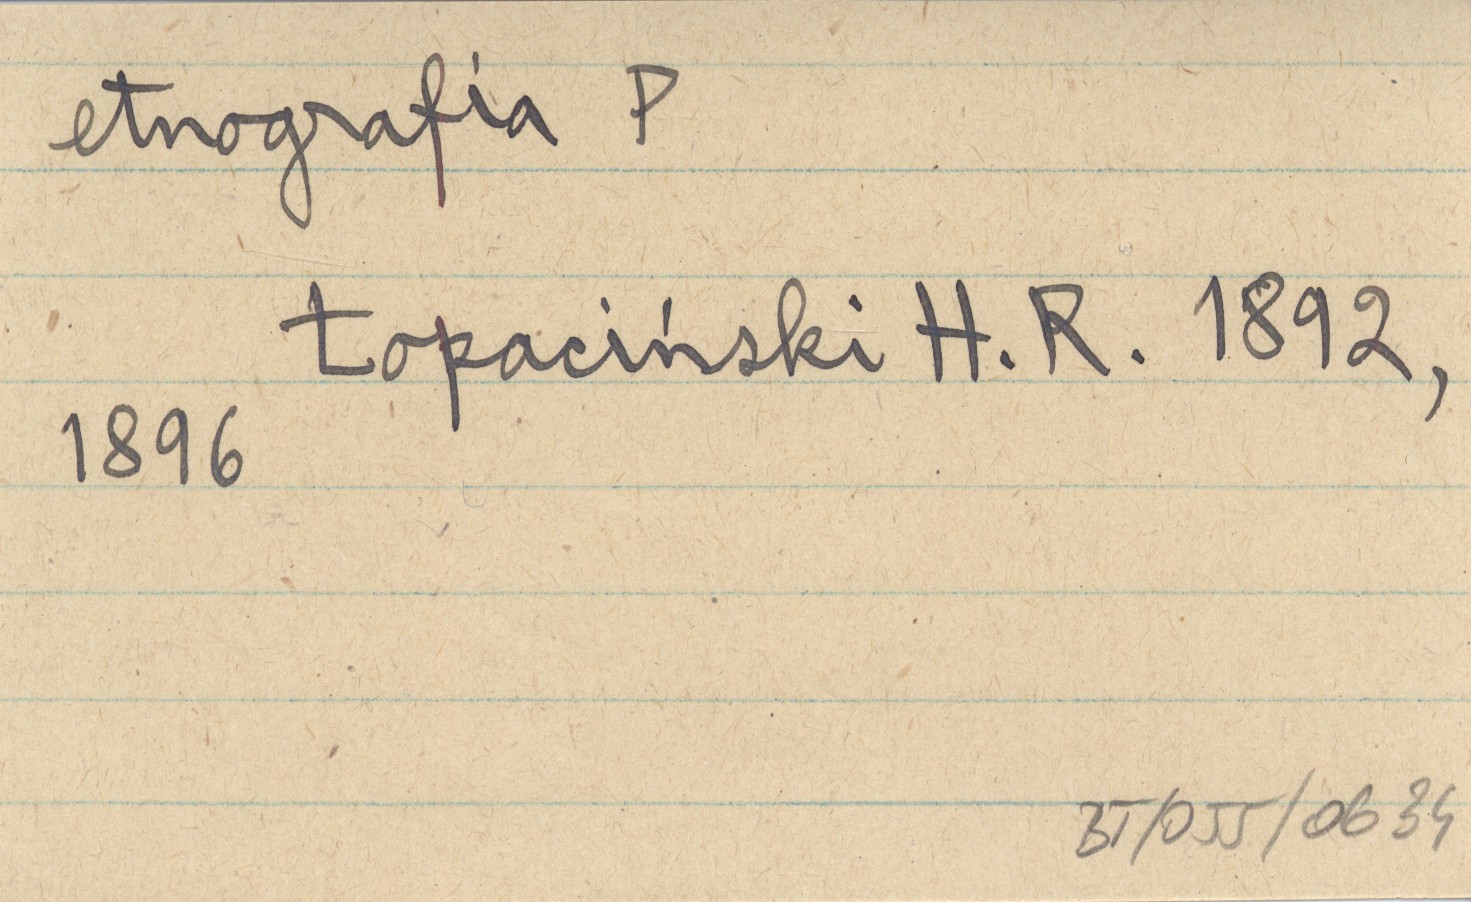 etnografia P
Łopaciński H. R. 1892,
1896
BT/055/0634